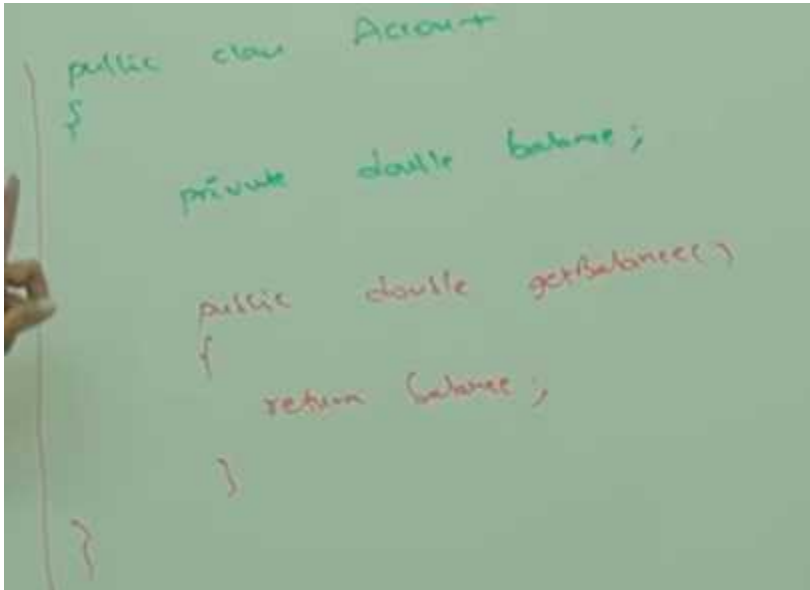 public class Account
{
private double balance;
public double getBalance()
{
return balance;
}
}